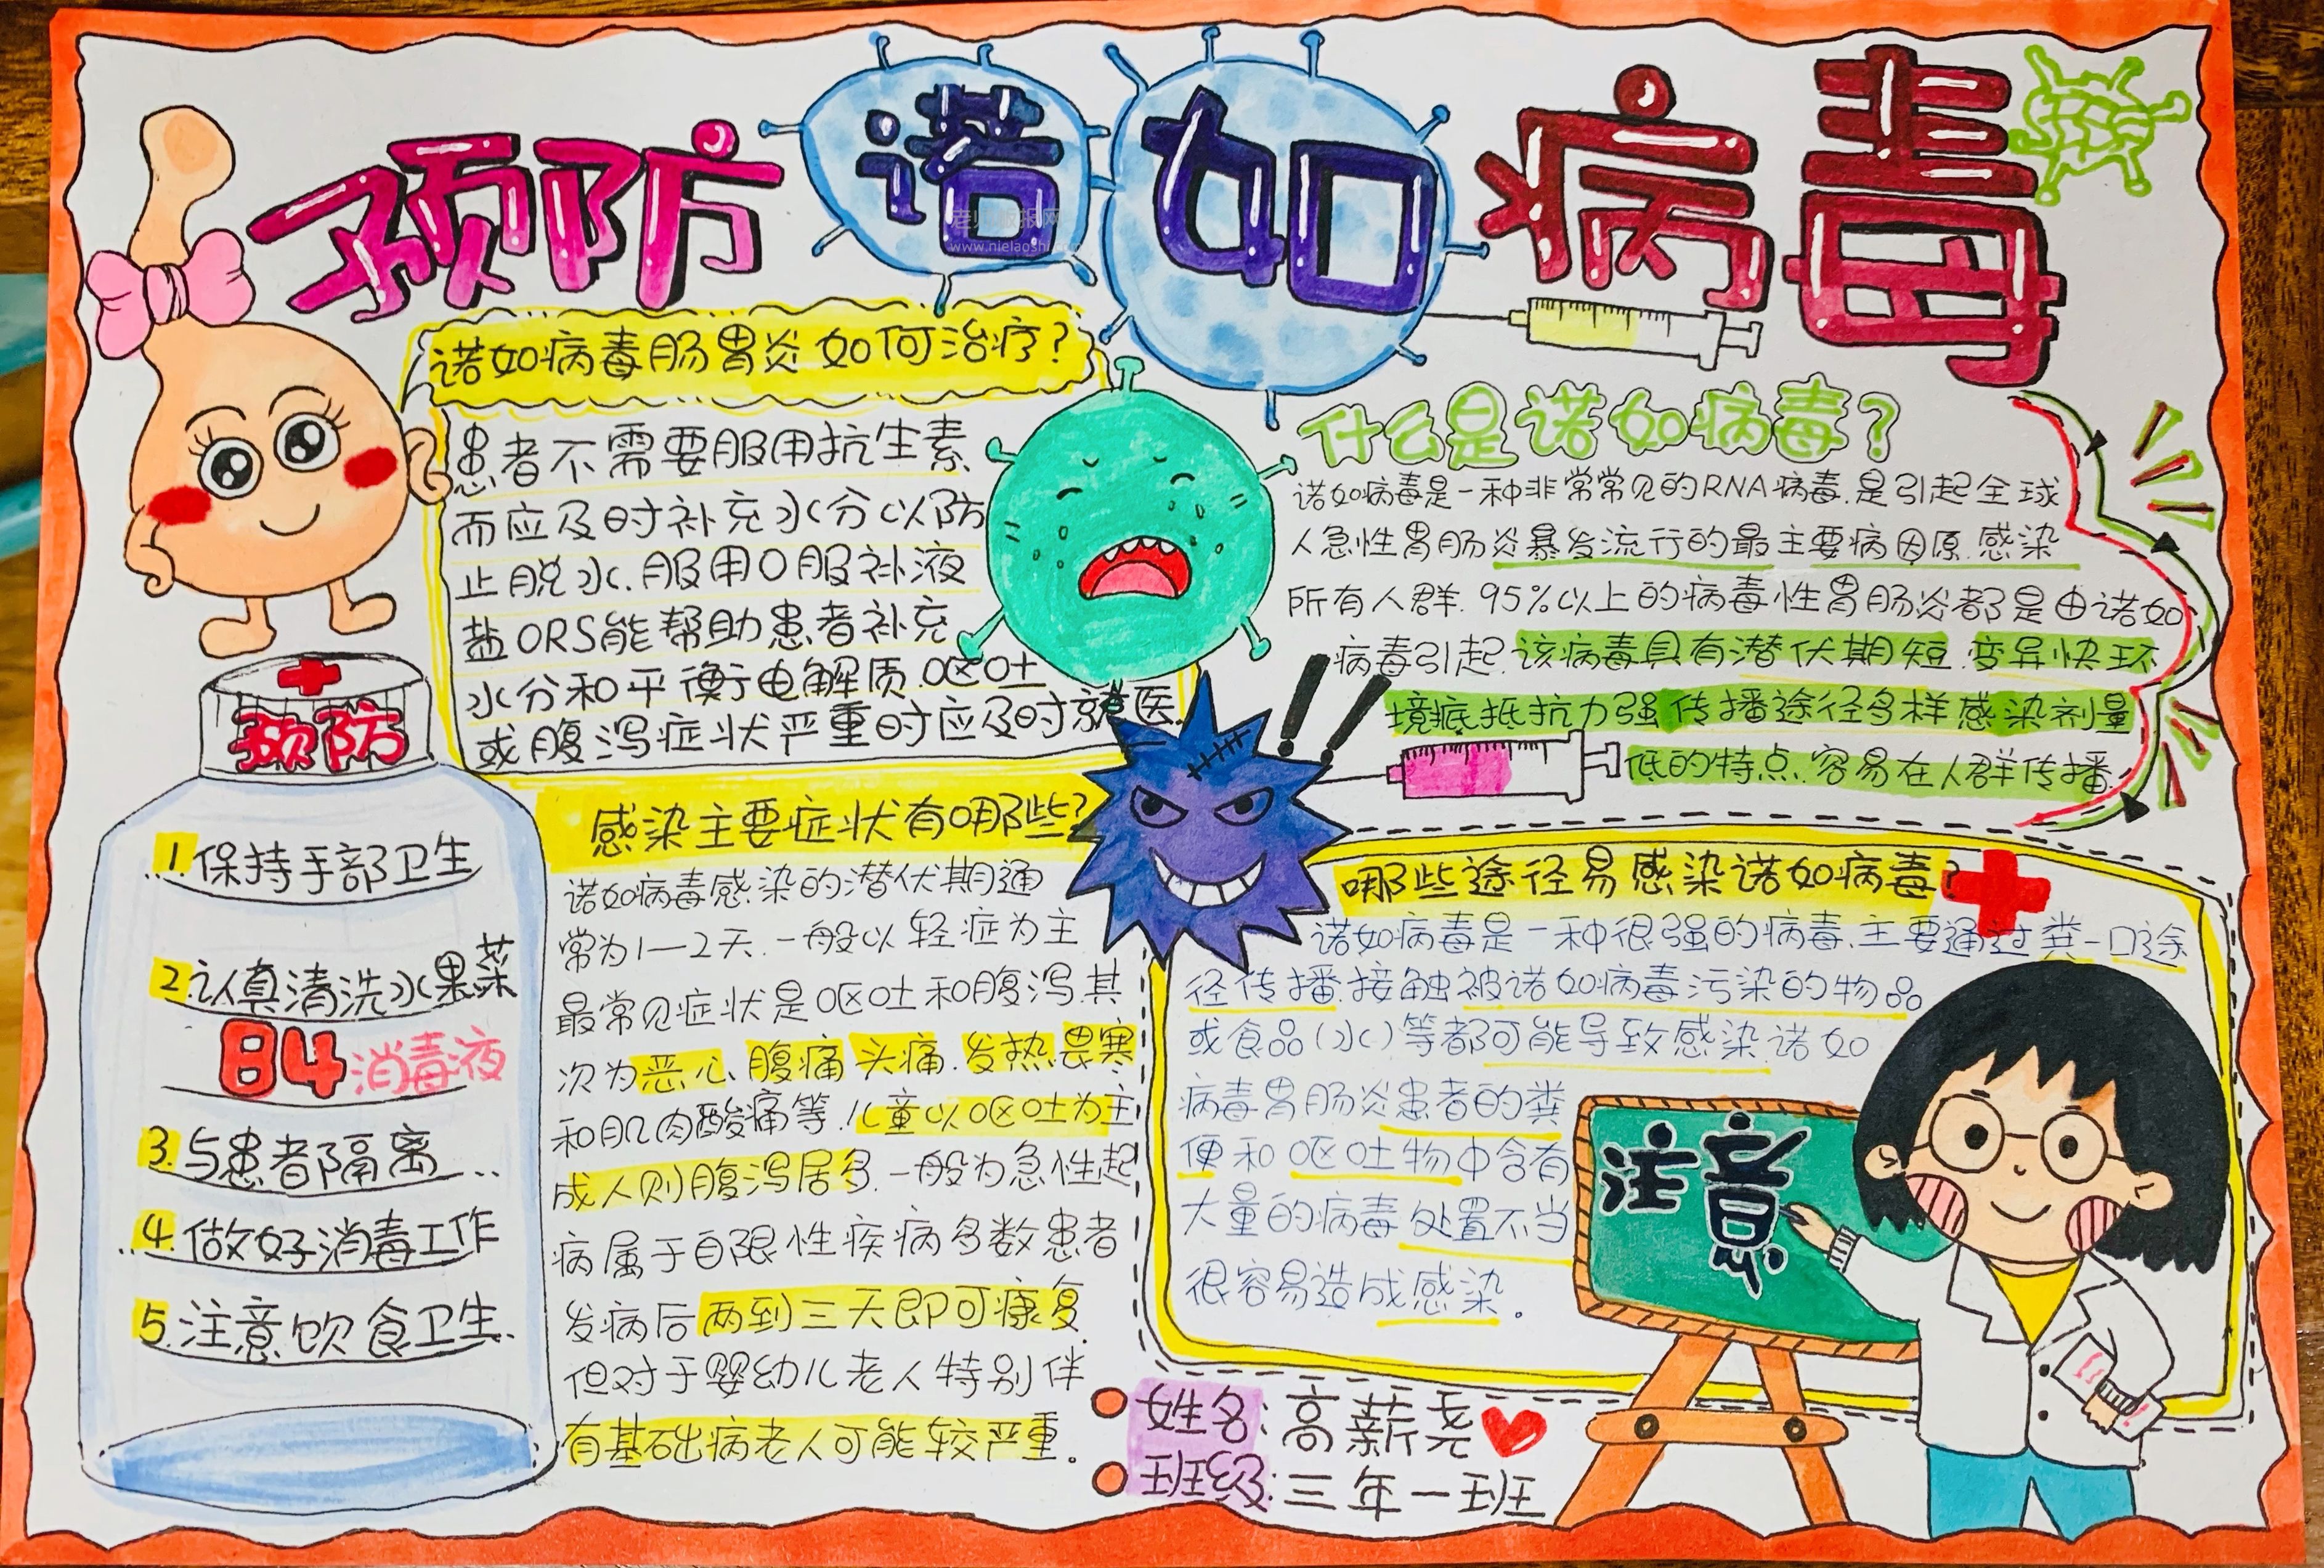 预防诺如病毒
老师板报网
www.nielaoshi.com
诺如病毒肠胃炎如何治疗?
患者不需要服用抗生素
而应及时补充水分以防
止脱水.服用口服补液
盐ORS能帮助患者补充
水分和平衡电解质.呕吐
或腹泻症状严重时应及时就医.
什么是诺如病毒?
诺如病毒是一种非常常见的RNA病毒.是引起全球
人急性胃肠炎暴发流行的最主要病因原.感染
所有人群.95%以上的病毒性胃肠炎都是由诺如
病毒引起.该病毒具有潜伏期短.变异快环
境抵抵抗力强传播途径多样感染剂量
低的特点.容易在人群传播.
预防
1 保持手部卫生
2.认真清洗水果菜
84消毒液
3.与患者隔离...
4.做好消毒工作
5.注意饮食卫生.
感染主要症状有哪些?
诺如病毒感染的潜伏期通
常为1—2天.一般以轻症为主
最常见症状是呕吐和腹泻其
次为恶心、腹痛头痛.发热.畏寒
和肌肉酸痛等.儿童以呕吐为主
成人则腹泻居多.一般为急性起
病属于自限性疾病多数患者
发病后两到三天即可康复.
但对于婴幼儿老人特别伴
有基础病老人可能较严重。
哪些途径易感染诺如病毒?
诺如病毒是一种很强的病毒.主要通过粪-口途
径传播.接触被诺如病毒污染的物品
或食品(水)等都可能导致感染诺如
病毒胃肠炎患者的粪
便和呕吐物中含有
大量的病毒处置不当
很容易造成感染。
注意
姓名:高薪尧
班级:三年一班